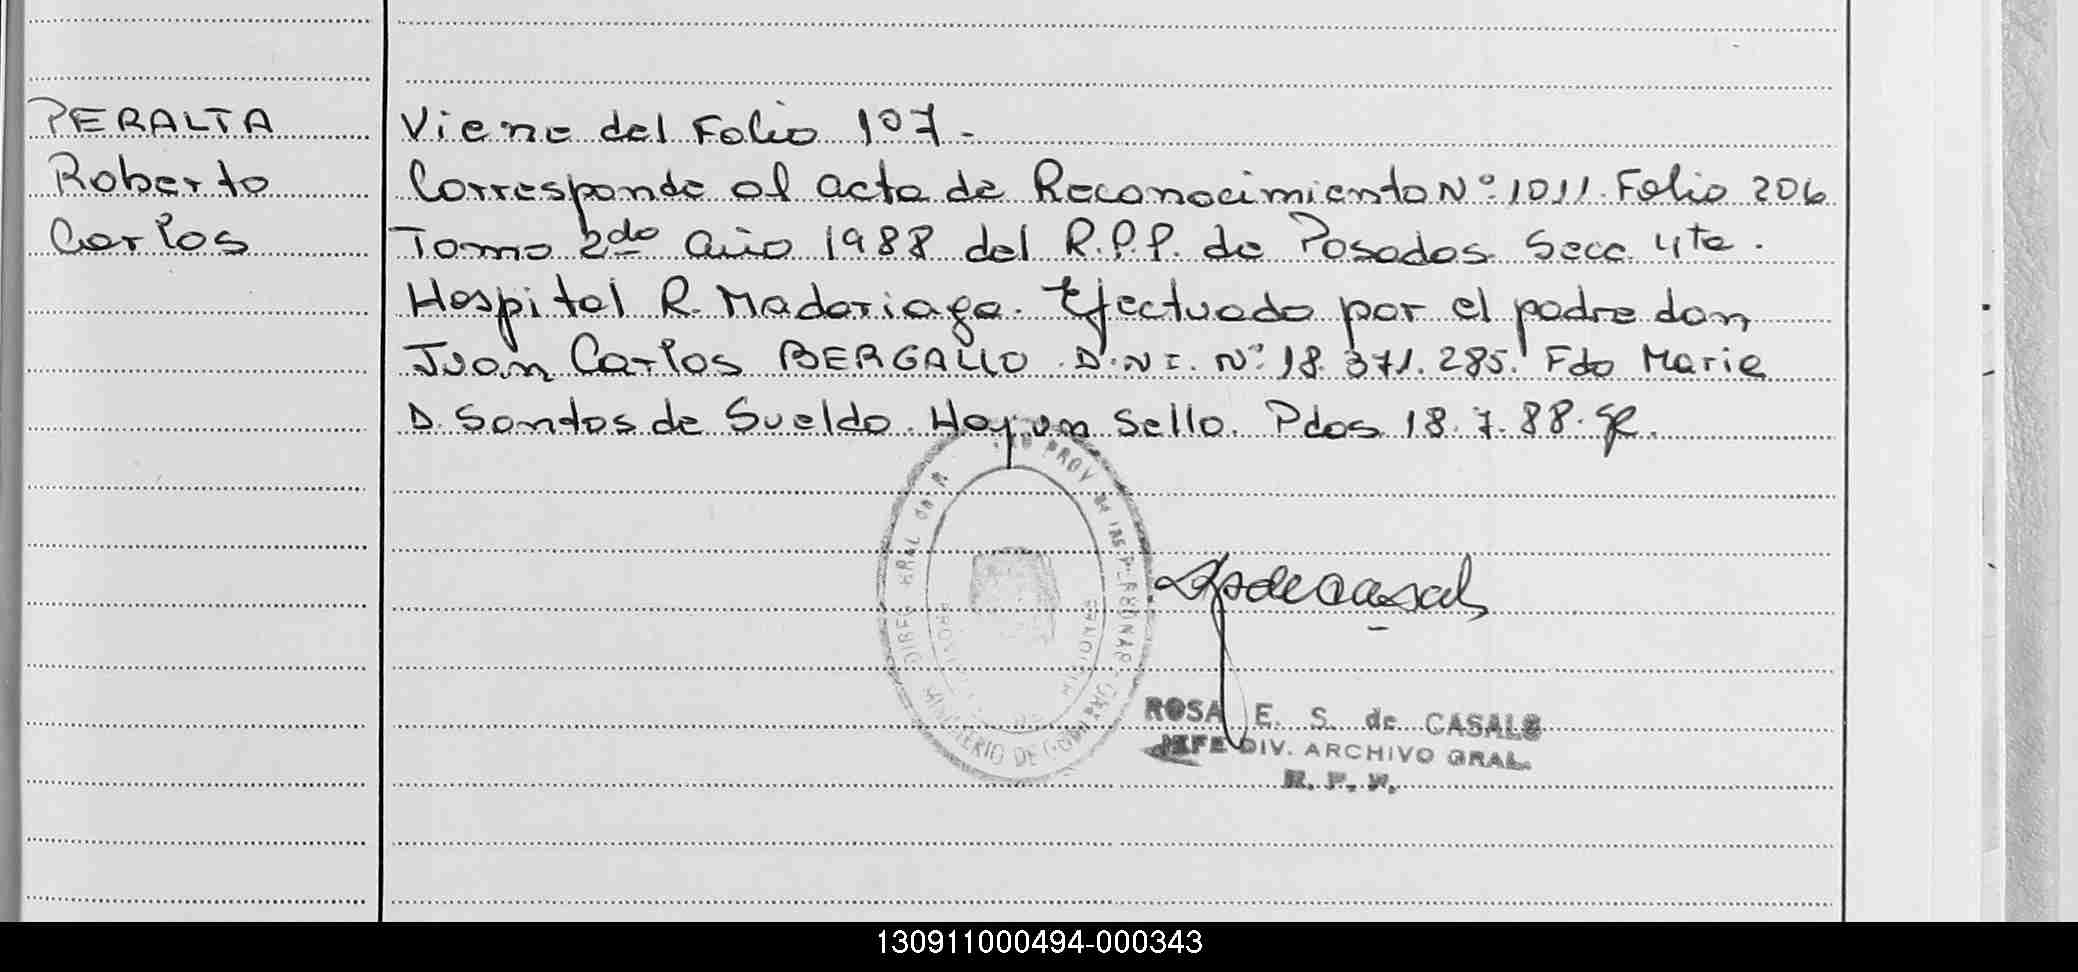 PERALTA
Roberto
Carlos
Viene del Folio 107.-
Corresponde al acta de Reconocimiento Nº:1011. Folio 206
Tomo 2do año 1988 del R.P.P. de Posadas Secc. 4ta.
Hospital R. Madariaga. Efectuado por el padre don
Juan Carlos BERGALLO. D.N.I. Nº:18.371.285. Fdo Maria
D. Santos de Sueldo. Hay un sello. Pdas 18.7.88.
ROSA E. S. de CASALS
JEFE DIV. ARCHIVO GRAL.
R. P. P.
130911000494-000343